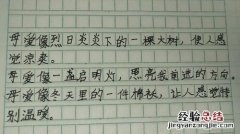 母爱像烈日炎炎下的一棵大树，使人感
觉凉爽。
母爱像一盏启明灯，照亮我前进的方向。
母爱像冬天里的一件棉袄，让人感觉特
别温暖。